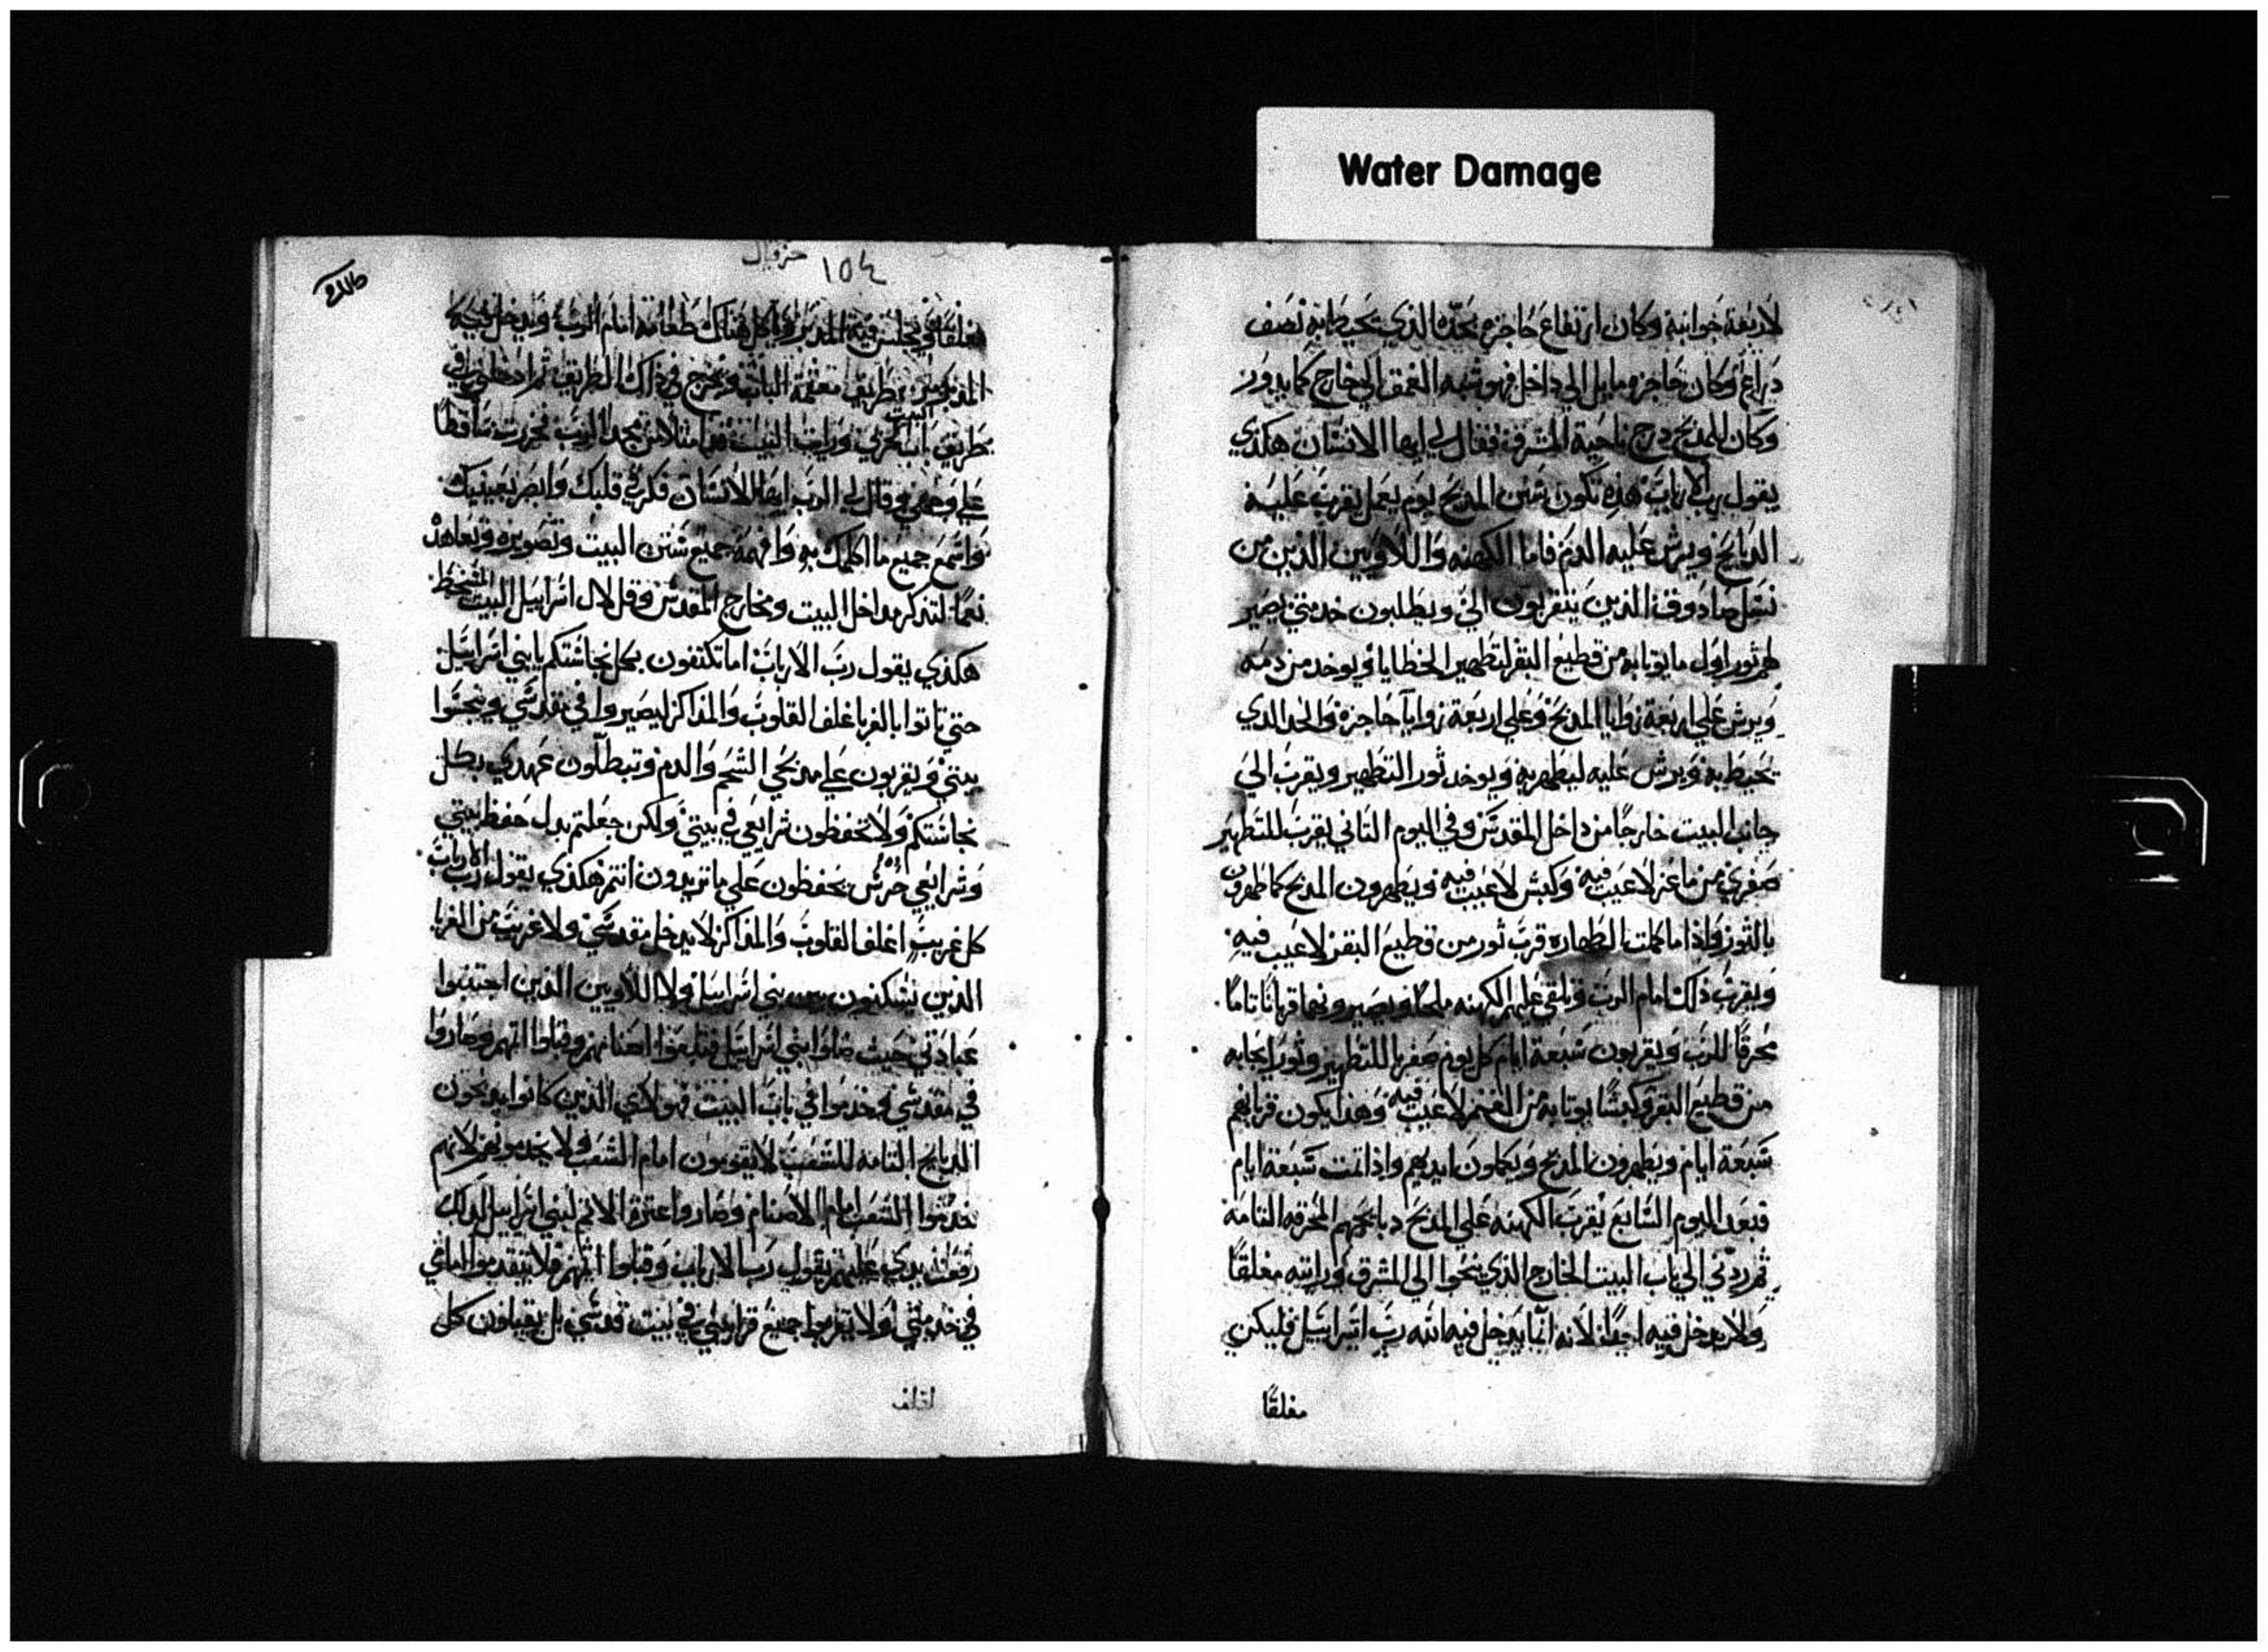 Water Damage
لاربعة جوانبه وكان ارتفاع حاجزه بحده الذي يحيط به نصف
دراع وكان حاجزه مايل الي داخل فهو شبه العمق الي خارج كما يدور
وكان للمدبح درج ناحية المشرق فقال لي ايها الانسان هكذي
يقول رب الارباب هذه تكون سنن المدبح يوم يعمل يقرب عليه
الدبايح ويرش عليه الدم فاما الكهنه واللاويين الذين من
نسل صادوق الذين يتقربون الي ويطلبون خدمتي يصير
لهم ثور اول ما يوتا به من قطيع البقر لتطهير الخطايا ويوخد من دمه
ويرش علي اربعة زوايا المدبح وعلي اربعة زوايا حاجزه والحد الذي
يحيط به ويرش عليه ليطهر به ويوخد ثور التطهير ويقرب الي
جانب البيت خارجا من داخل المقدس وفي اليوم التاني يقرب للتطهير
صفري من ماعز لاعيب فيه وكبش لاعيب فيه ويطهرون المدبح كما طهرون
بالثور واذا ما كملت الطهاره قرب ثور من قطيع البقر لاعيب فيه
ويقرب ذلك امام الرب ويلقي عليهم الكهنه ملحا ويصيرونهما قربانا تاما
محرقا للرب ويقربون سبعة ايام كل يوم صفريا للتطهير وثورا يجابه
من قطيع البقر وكبشا يوتا به من الغنم لاعيب فيه وهذا يكون قربانهم
سبعة ايام ويطهرون المدبح ويكملون ايديهم واذا تمت سبعة ايام
فبعد اليوم السابع يقرب الكهنه علي المدبح دبايحهم المحرقه التامه
ثم ردني الي باب البيت الخارج الذي ينحوا الي المشرق ورايته مغلقا
ولا يدخل فيه احدا لانه انما يدخل فيه الله رب اسراييل فليكن
مغلقا
حزقيال ١٥٤
مغلقا ويجلس فيه المدبر وياكل هناك طعامه امام الرب ويدخل فيه
المدبر من طريق متقمه الباب ويخرج في ذلك الطريق ثم ادخلني في
طريق باب البيت البحري ورايت البيت فهو امتلا من مجد الرب فخررت ساقطا
علي وجهي وقال لي الرب ايها الانسان فكر في قلبك وابصر بعينيك
واسمع جميع ما اكلمك به وافهمه جميع سنن البيت وتصويره وتعاهد
نعما لتذكر مداخل البيت ومخارج المقدس وقل لال اسراييل البيت المسخط
هكذي يقول رب الارباب اما تكتفون بكل نجاستكم يا بني اسراييل
حتي تاتوا بالغربا غلف القلوب والمذاكر ليصيروا في مقدسي وينجسوا
بيتي ويقربون علي مدبحي الشحم والدم وتبطلون عهدي بكل
نجاستكم ولا تحفظون شرايعي في بيتي ولكن جعلتم بدل حفظ بيتي
وشرايعي حرس يحفظون علي ما تريدون انتم هكذي يقول رب الارباب
كل غريب اغلف القلوب والمذاكر لا يدخل مقدسي ولا غريب من الغربا
الذين يسكنون بين بني اسراييل ولا اللاويين الذين اجتنبوا
عبادتي حيث ضلوا بني اسراييل فتبعوا اصنامهم وقبلوا اثمهم وصاروا
في مقدسي يخدموا في باب البيت فهولاي الذين كانوا يدبحون
الدبايح التامه للشعب لا يقومون امام الشعب ولا يخدمونهم لانهم
خدموا الشعب امام الاصنام وصاروا عثرة الاثم لبني اسراييل لذلك
رفعت يدي عليهم يقول رب الارباب وقبلوا اثمهم فلا يتقدموا امامي
في خدمتي ولا يقربوا جميع قرابيني في بيت قدسي بل يقبلون كل